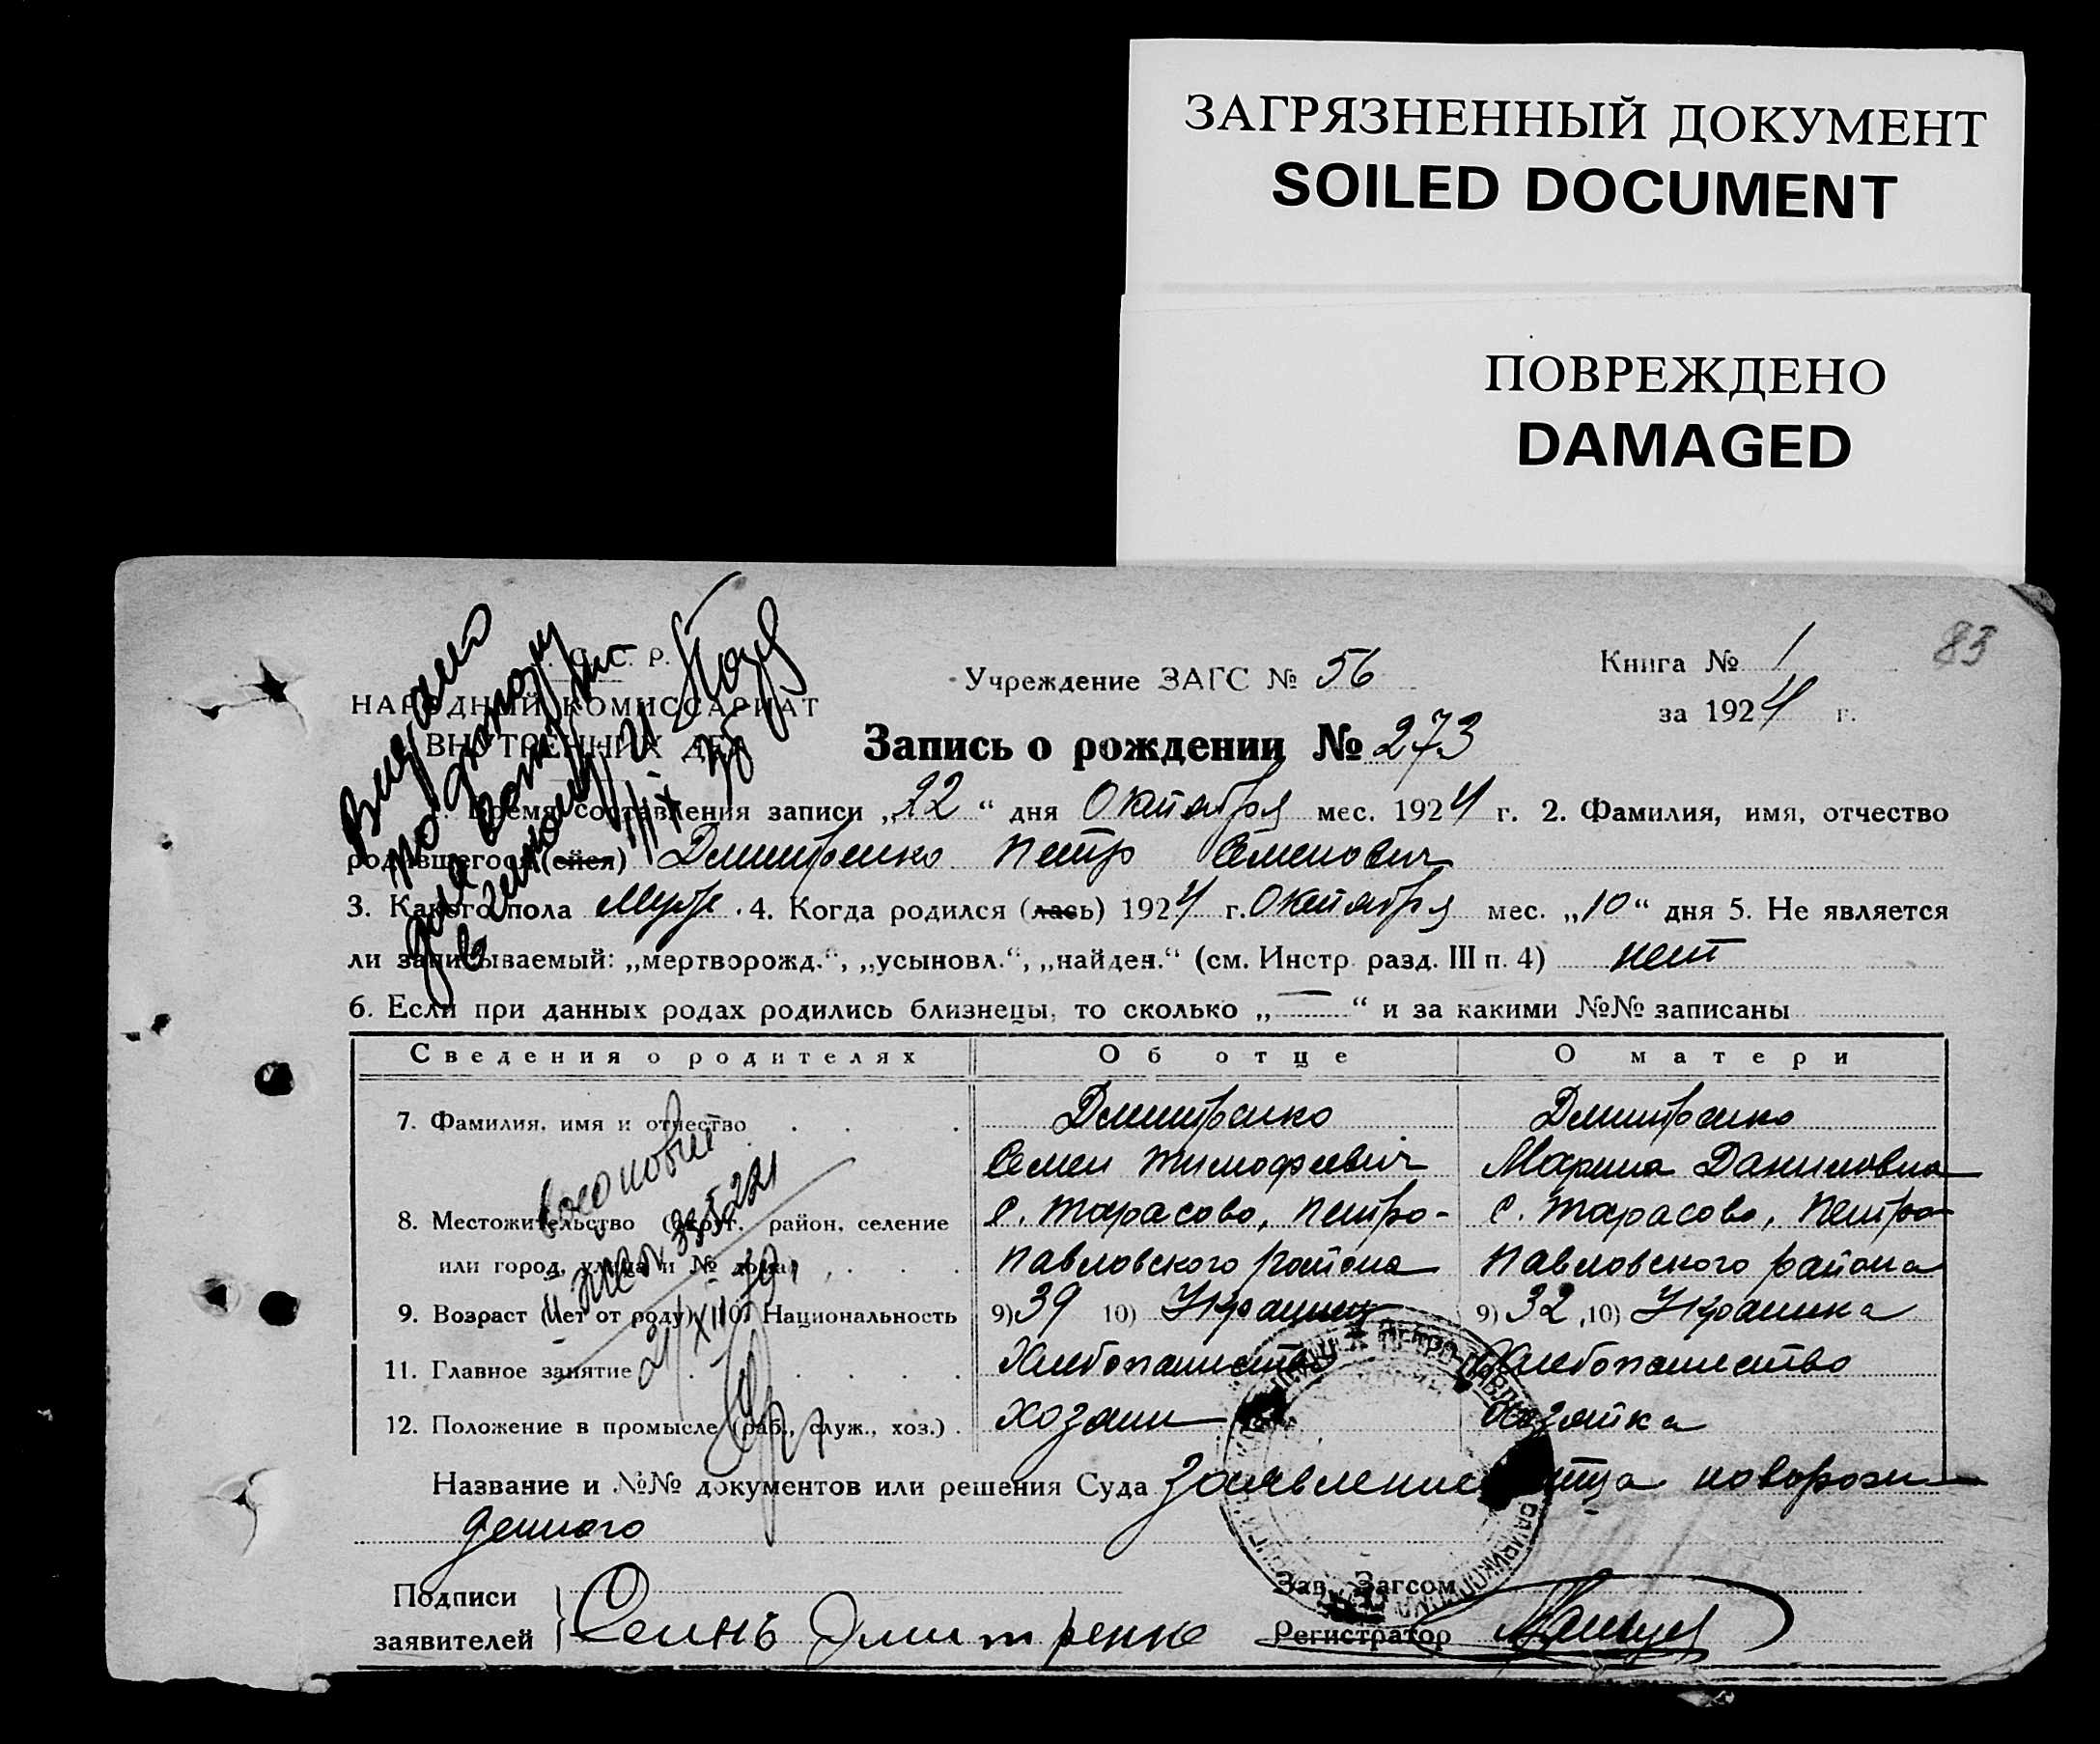 ЗАГРЯЗНЕННЫЙ ДОКУМЕНТ
SOILED DOCUMENT
ПОВРЕЖДЕНО
DAMAGED
83
С. Р.
НАРОДНЫЙ КОМИССАРИАТ
ВНУТРЕННИХ ДЕЛ
Учреждение ЗАГС № 56
Книга № 1
за 1924 г.
Запись о рождении № 273
Время составления записи „22“ дня Октября мес. 1924 г. 2. Фамилия, имя, отчество
родившегося (ейся) Дмитренко Петр Семенович
3. Какого пола Муж. 4. Когда родился (лась) 1924 г. Октября мес. „10“ дня 5. Не является
ли записываемый: „мертворожд.“, „усыновл.“, „найден.“ (см. Инстр. разд. III п. 4) нет
6. Если при данных родах родились близнецы, то сколько „—“ и за какими №№ записаны
Сведения о родителях Об отце О матери
7. Фамилия, имя и отчество Дмитренко Дмитренко
Семен Тимофеевич Марина Даниловна
8. Местожительство (округ, район, селение с. Тарасово, Петро- с. Тарасово, Петро-
или город, улица и № дома) Павловского района Павловского района
9. Возраст (лет от роду) 10. Национальность 9) 39 10) Украинец 9) 32, 10) Украинка
11. Главное занятие Хлебопашество Хлебопашество
12. Положение в промысле (раб., служ., хоз.) Хозяин Хозяйка
Название и №№ документов или решения Суда Заявление отца новорож-
денного
Подписи
заявителей
Семнъ Дмитренко
Зав. Загсом
Регистратор